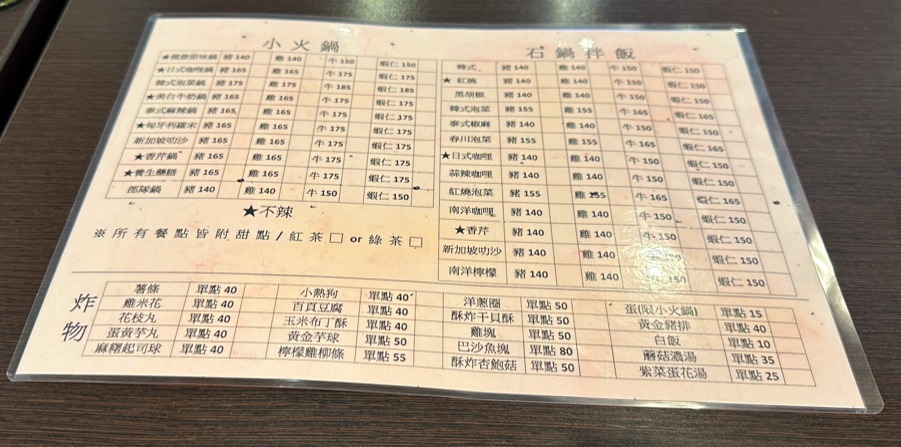 小火鍋
★健康原味鍋 豬 140 雞 140 牛 150 蝦仁 150
★日式咖哩鍋 豬 165 雞 165 牛 175 蝦仁 175
韓式泡菜鍋 豬 175 雞 175 牛 185 蝦仁 185
★美白牛奶鍋 豬 165 雞 165 牛 175 蝦仁 175
泰式麻辣鍋 豬 165 雞 165 牛 175 蝦仁 175
★匈牙利羅宋 豬 165 雞 165 牛 175 蝦仁 175
新加坡叻沙 豬 165 雞 165 牛 175 蝦仁 175
★香芹鍋 豬 165 雞 165 牛 175 蝦仁 175
★養生藥膳 豬 165 雞 165 牛 175 蝦仁 175
部隊鍋 豬 140 雞 140 牛 150 蝦仁 150
★不辣
※所有餐點皆附甜點/紅茶□ or 綠茶□
石鍋拌飯
韓式 豬 140 雞 140 牛 150 蝦仁 150
★紅燒 豬 140 雞 140 牛 150 蝦仁 150
黑胡椒 豬 140 雞 140 牛 150 蝦仁 150
韓式泡菜 豬 155 雞 155 牛 165 蝦仁 165
泰式椒麻 豬 140 雞 140 牛 150 蝦仁 150
春川泡菜 豬 155 雞 155 牛 165
★日式咖哩 豬 140 雞 140 牛 150 蝦仁 150
蒜辣咖哩 豬 140 雞 140 牛 150 蝦仁 150
紅燒泡菜 豬 155 雞 155 牛 165 蝦仁 165
南洋咖哩 豬 140 雞 140 牛 150 蝦仁 150
★香芹 豬 140 雞 140 牛 150 蝦仁 150
新加坡叻沙 豬 140 雞 140 牛 150 蝦仁 150
南洋檸檬 豬 140 雞 140 牛 150 蝦仁 150
炸物
薯條 單點 40 小熱狗 單點 40 洋蔥圈 單點 50 蛋(限小火鍋) 單點 15
雞米花 單點 40 百頁豆腐 單點 40 酥炸干貝酥 單點 50 黃金豬排 單點 40
花枝丸 單點 40 玉米布丁酥 單點 40 雞塊 單點 50 白飯 單點 10
蛋黃芋丸 單點 40 黃金芋球 單點 50 巴沙魚塊 單點 80 蘑菇濃湯 單點 35
麻糬起司球 單點 40 檸檬雞柳條 單點 55 酥炸杏鮑菇 單點 50 紫菜蛋花湯 單點 25